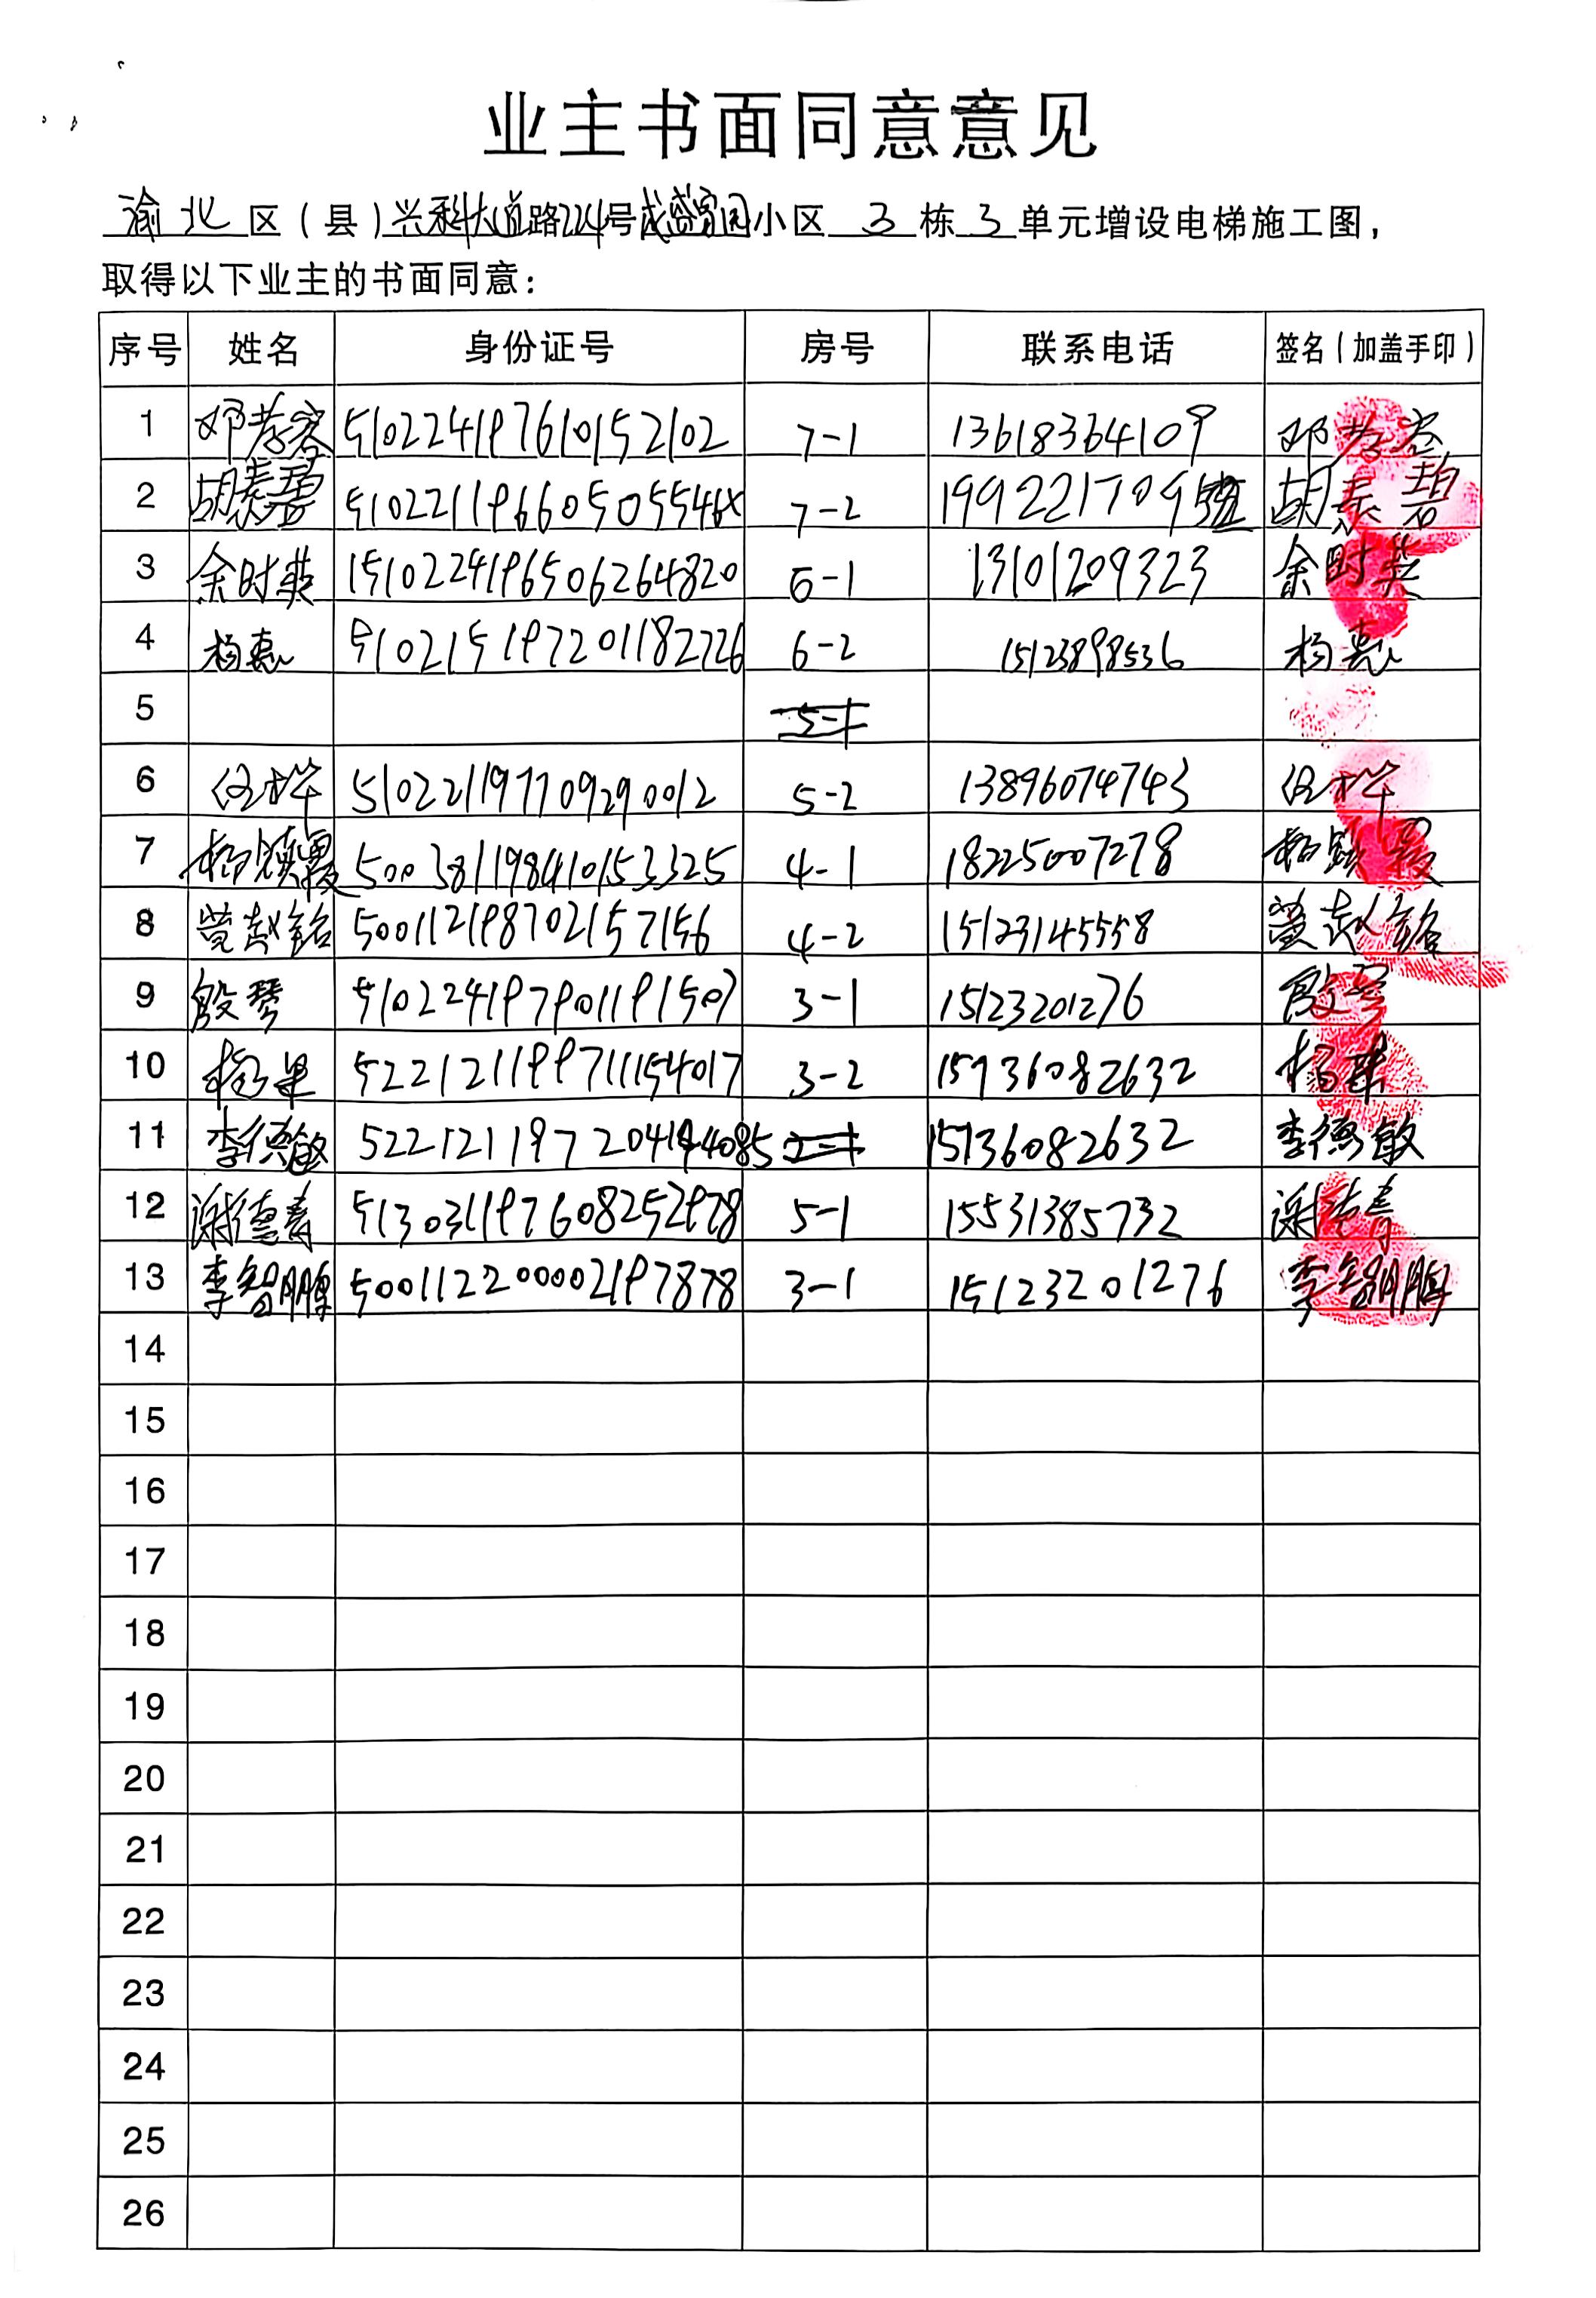 业主书面同意意见
渝北区(县)兴科大道路224号成盛家园小区 3 栋 3 单元增设电梯施工图,
取得以下业主的书面同意:
序号 姓名 身份证号 房号 联系电话 签名(加盖手印)
1 邓孝容 510224197610152102 7-1 13618364109 邓孝容
2 胡泰碧 7-2 胡泰碧
3 余时英 510224196506264820 6-1 13101209323 余时英
4 杨惠 510215197201182726 6-2 15123898536 杨惠
5 5-1
6 510221197709290012 5-2 13896074743
7 500381198410153325 4-1 18225007278
8 500112198702157156 4-2 15123145558
9 殷琴 510224197901191507 3-1 15123201276 殷琴
10 杨果 522121199711154017 3-2 15736082632 杨果
11 李德敏 2-1 15736082632 李德敏
12 谢德寿 513031197608252978 5-1 15531385732 谢德寿
13 李智鹏 500112200002197878 3-1 15123201276 李智鹏
14
15
16
17
18
19
20
21
22
23
24
25
26